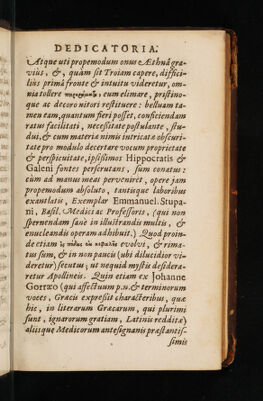 DEDICATORIA.
Atque uti propemodum onus Æthnâ gra-
vius, & , quàm sit Troiam capere, diffici-
lius primâ fronte & intuitu videretur, om-
nia tollere eum elimare, pristino-
que ac decoro nitori restituere: belluam ta-
men eam, quantum fieri posset, conficiendam
ratus facilitati, necessitate postulante, stu-
dus, & cum materia nimis intricatè obscuri-
tate pro modulo decertare vocum proprietate
& perspicuitate, ipsissimos Hippocratis &
Galeni fontes perscrutans, sum conatus:
cùm ad manus meas perveniret, opere jam
propemodum absoluto, tantisque laboribus
exantlatis, Exemplar Emmanuel. Stupa-
ni, Basil. Medici ac Professoris, (qui non
spernendam sanè in illustrandis multis, &
enucleandis operam adhibuit.) Quod proin-
de etiam evolvi, & rima-
tus sum, & in non paucis (ubi dilucidior vi-
deretur) secutus; ut nequid mystis desidera-
retur Apollineis. Quin etiam ex Johanne
Gorræo (qui affectuum p.n. & terminorum
voces, Græcis expressit characteribus, quæ
hîc, in literarum Græcarum, qui plurimi
sunt, ignarorum gratiam, Latinis redditæ)
aliisque Medicorum antesignanis præstantis-
simis